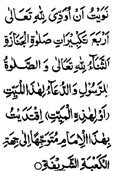 نَوَيْتُ اَنْ اُؤَدِّىَ لِلّٰهِ تَعَالٰى
اَرْبَعَ تَكْبِيْرَاتِ صَلٰوةِ الْجَنَازَةِ
اَلثَّنَاءُ لِلّٰهِ تَعَالٰى وَالصَّلٰوةُ
لِلرَّسُوْلِ وَالدُّعَاءُ لِهٰذَا الْمَيِّتِ
(اَوْ لِهٰذِهِ الْمَيِّتِ) اِقْتَدَيْتُ
بِهٰذَا الْاِمَامِ مُتَوَجِّهًا اِلٰى جِهَةِ
الْكَعْبَةِ الشَّرِيْفَةِ۝